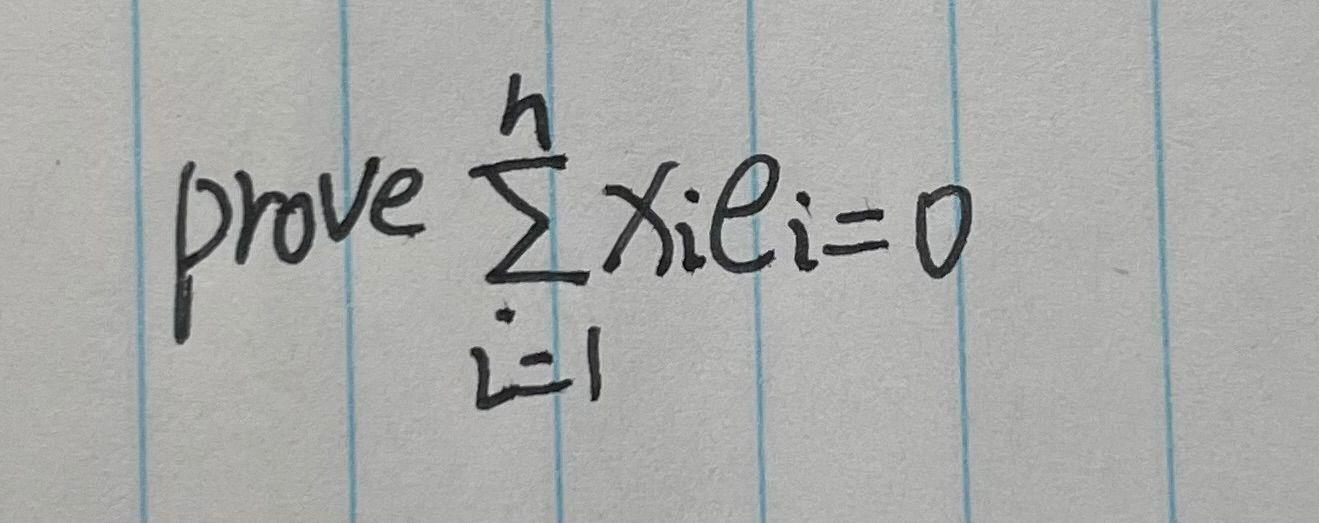 prove $\sum_{i=1}^{n} x_i e_i = 0$